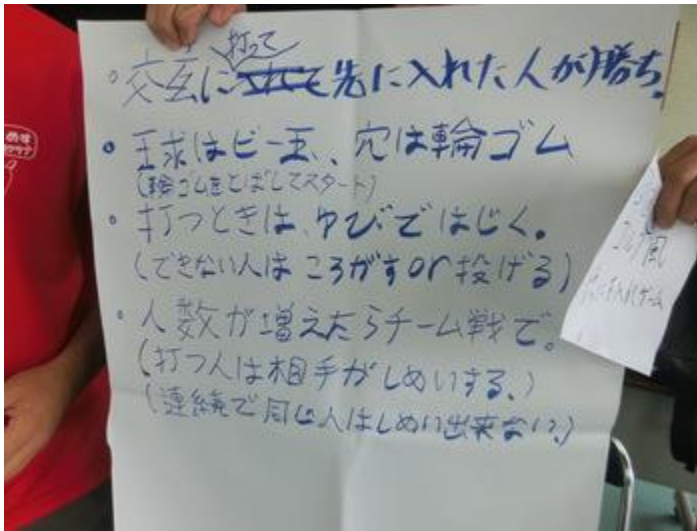 ・交互に打って先に入れた人が勝ち。
・球はビー玉、穴は輪ゴム
(輪ゴムをとばしてスタート)
・打つときは、ゆびではじく。
(できない人はころがすor投げる)
・人数が増えたらチーム戦で。
(打つ人は相手がしめいする。)
(連続で同じ人はしめい出来ない。)
ゴルフ風
ゲーム